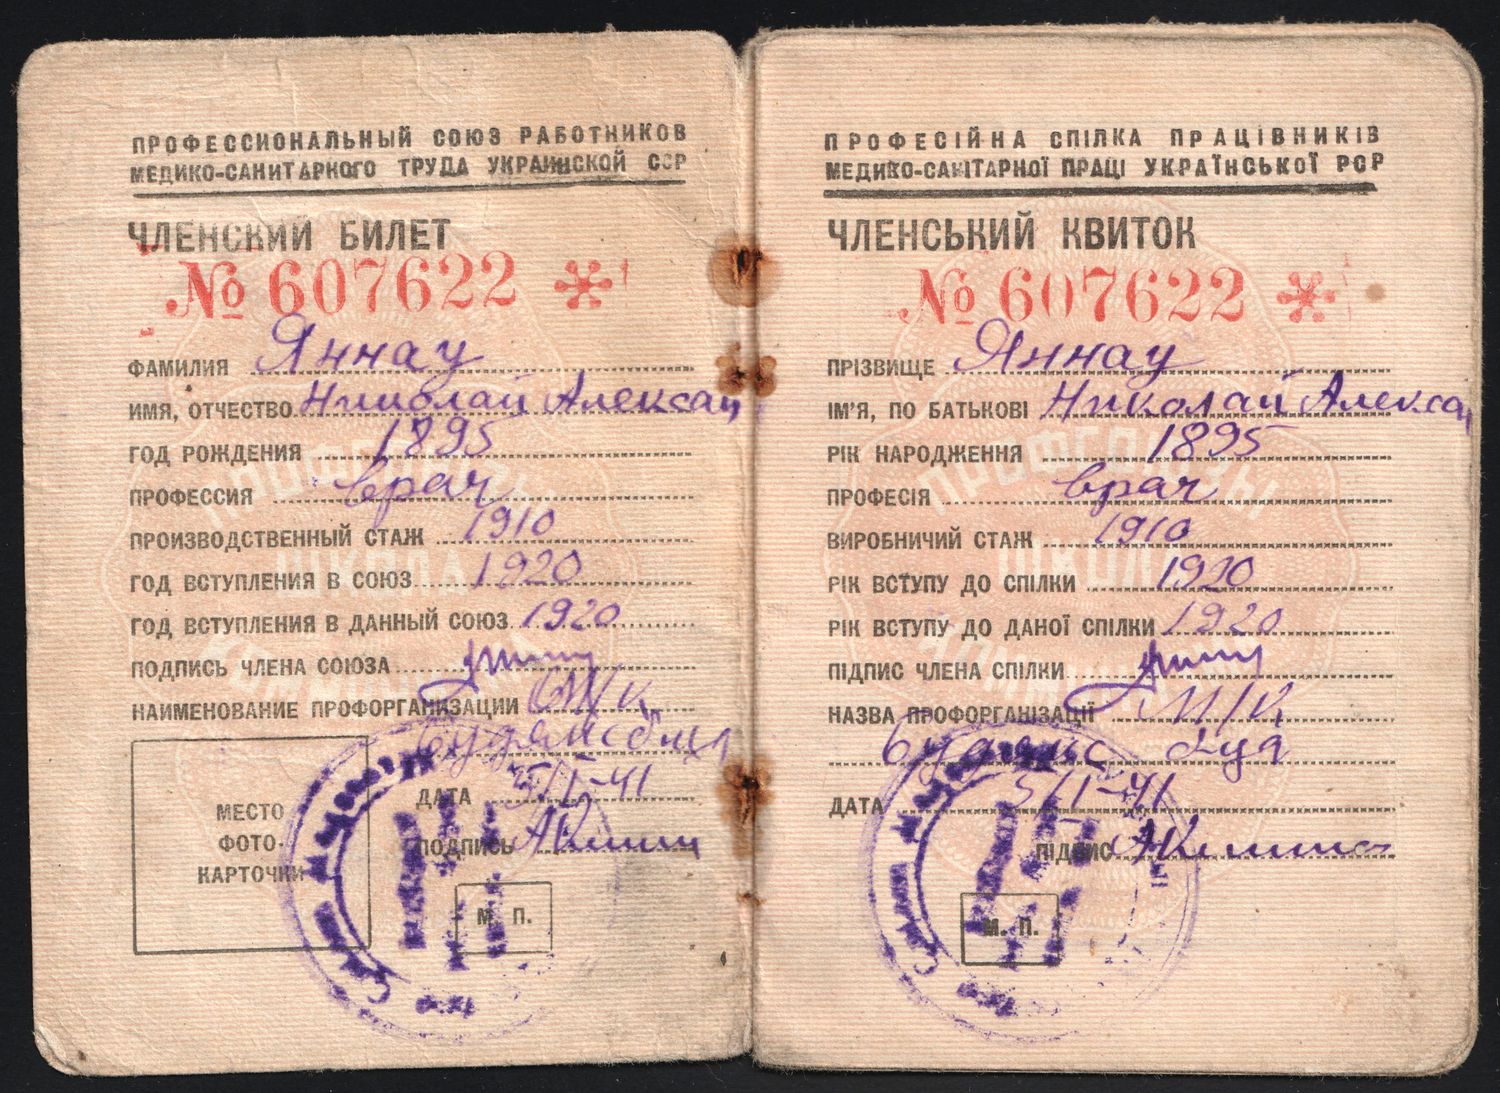 ПРОФЕССИОНАЛЬНЫЙ СОЮЗ РАБОТНИКОВ
МЕДИКО-САНИТАРНОГО ТРУДА УКРАИНСКОЙ ССР
ЧЛЕНСКИЙ БИЛЕТ
№ 607622 *
ФАМИЛИЯ Яннау
ИМЯ, ОТЧЕСТВО Николай Алексан
ГОД РОЖДЕНИЯ 1895
ПРОФЕССИЯ врач
ПРОИЗВОДСТВЕННЫЙ СТАЖ 1910
ГОД ВСТУПЛЕНИЯ В СОЮЗ 1920
ГОД ВСТУПЛЕНИЯ В ДАННЫЙ СОЮЗ 1920
ПОДПИСЬ ЧЛЕНА СОЮЗА
НАИМЕНОВАНИЕ ПРОФОРГАНИЗАЦИИ
ДАТА 5/I-41
ПОДПИСЬ
МЕСТО
ФОТО-
КАРТОЧКИ
М. П.
ПРОФЕСІЙНА СПІЛКА ПРАЦІВНИКІВ
МЕДИКО-САНІТАРНОЇ ПРАЦІ УКРАЇНСЬКОЇ РСР
ЧЛЕНСЬКИЙ КВИТОК
№ 607622 *
ПРІЗВИЩЕ Яннау
ІМ'Я, ПО БАТЬКОВІ Николай Алексан
РІК НАРОДЖЕННЯ 1895
ПРОФЕСІЯ врач
ВИРОБНИЧИЙ СТАЖ 1910
РІК ВСТУПУ ДО СПІЛКИ 1920
РІК ВСТУПУ ДО ДАНОЇ СПІЛКИ 1920
ПІДПИС ЧЛЕНА СПІЛКИ
НАЗВА ПРОФОРГАНІЗАЦІЇ М/К
ДАТА 5/I-41
ПІДПИС
М. П.